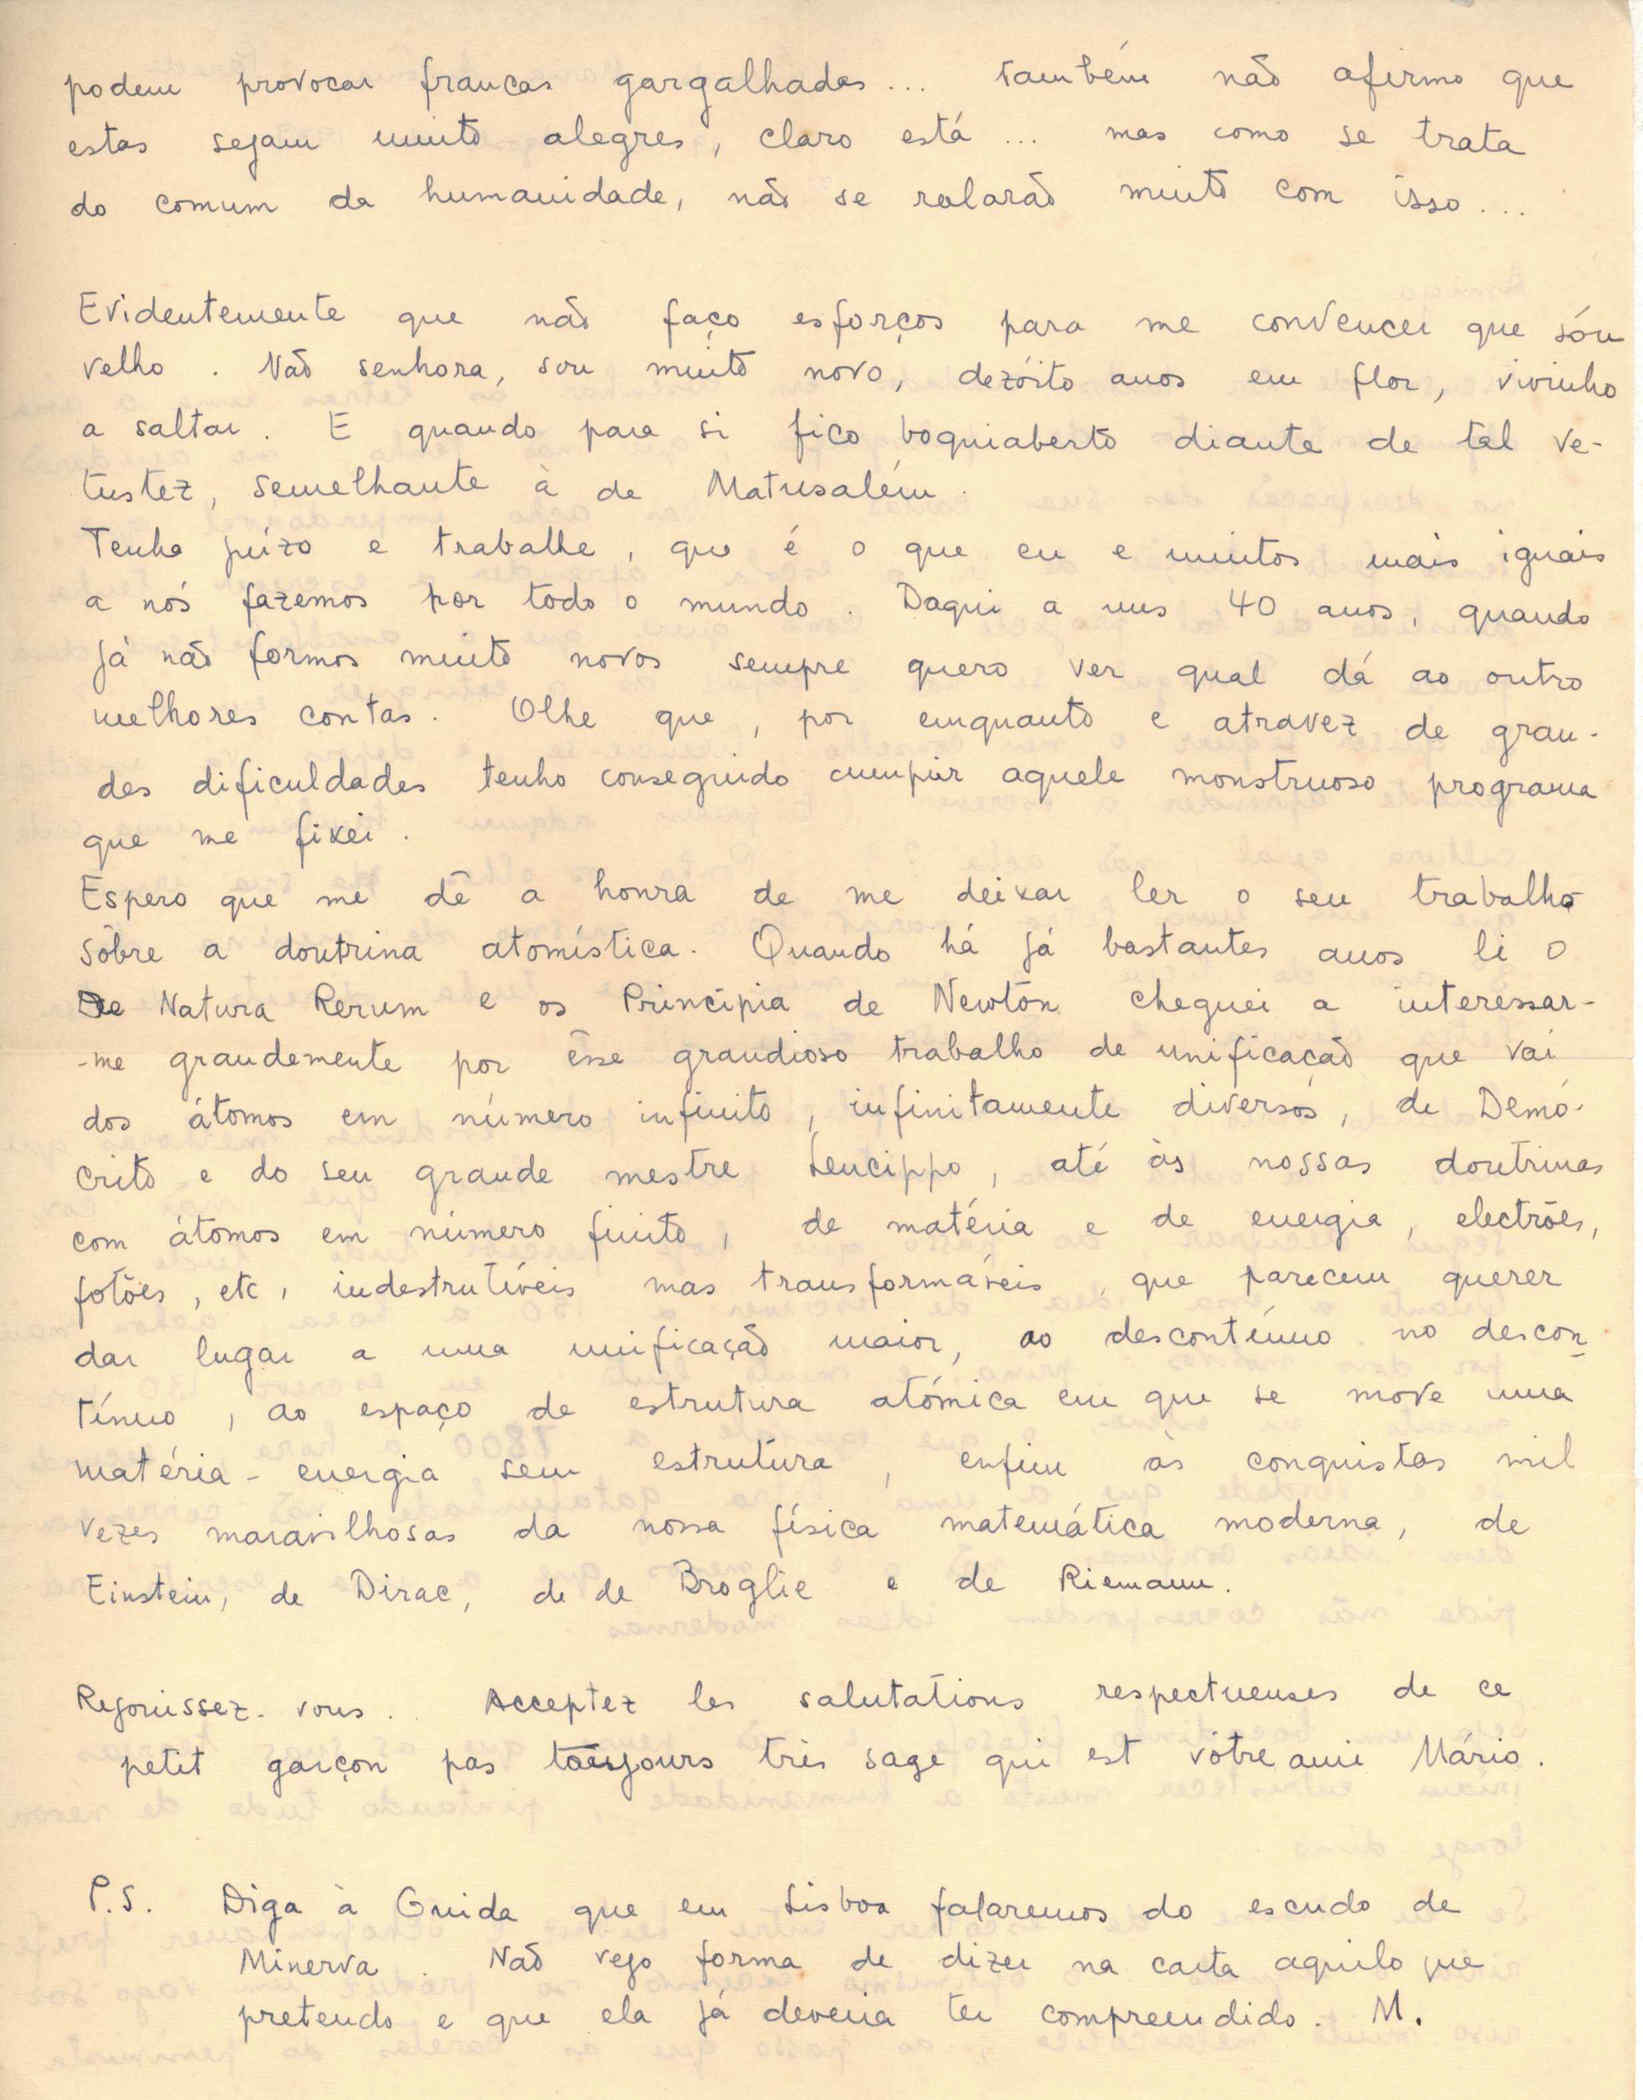 podem provocar francas gargalhadas... também não afirmo que
estas sejam muito alegres, claro está... mas como se trata
do comum da humanidade, não se ralarão muito com isso...
Evidentemente que não faço esforços para me convencer que sóu
velho. Não senhora, sou muito novo, dezóito anos em flor, vivinho
a saltar. E quando para si fico boquiaberto diante de tal ve-
tustez, semelhante à de Matusalém.
Tenha juízo e trabalhe, que é o que eu e muitos mais iguais
a nós fazemos por todo o mundo. Daqui a uns 40 anos, quando
já não formos muito novos sempre quero ver qual dá ao outro
melhores contas. Olhe que, por emquanto e atravez de gran-
des dificuldades tenho conseguido cumprir aquele monstruoso programa
que me fixei.
Espero que me dê a honra de me deixar ler o seu trabalho
sôbre a doutrina atomística. Quando há já bastantes anos li o
De Natura Rerum e os Principia de Newton cheguei a interessar-
-me grandemente por êsse grandioso trabalho de unificação que vai
dos átomos em número infinito, infinitamente diversos, de Demó-
crito e do seu grande mestre Leucippo, até às nossas doutrinas
com átomos em número finito, de matéria e de energia, electrões,
fotões, etc, indestrutíveis mas transformáveis, que parecem querer
dar lugar a uma unificação maior, ao descontínuo no descon-
tínuo, ao espaço de estrutura atómica em que se move uma
matéria-energia sem estrutura, enfim às conquistas mil
vezes maravilhosas da nossa física matemática moderna, de
Einstein, de Dirac, de de Broglie e de Riemann.
Rejouissez-vous. Acceptez les salutations respectueuses de ce
petit garçon pas toujours très sage qui est vôtre ami Mário.
P.S. Diga à Guida que em Lisboa falaremos do escudo de
Minerva. Não vejo forma de dizer na carta aquilo que
pretendo e que ela já deveria ter compreendido. M.